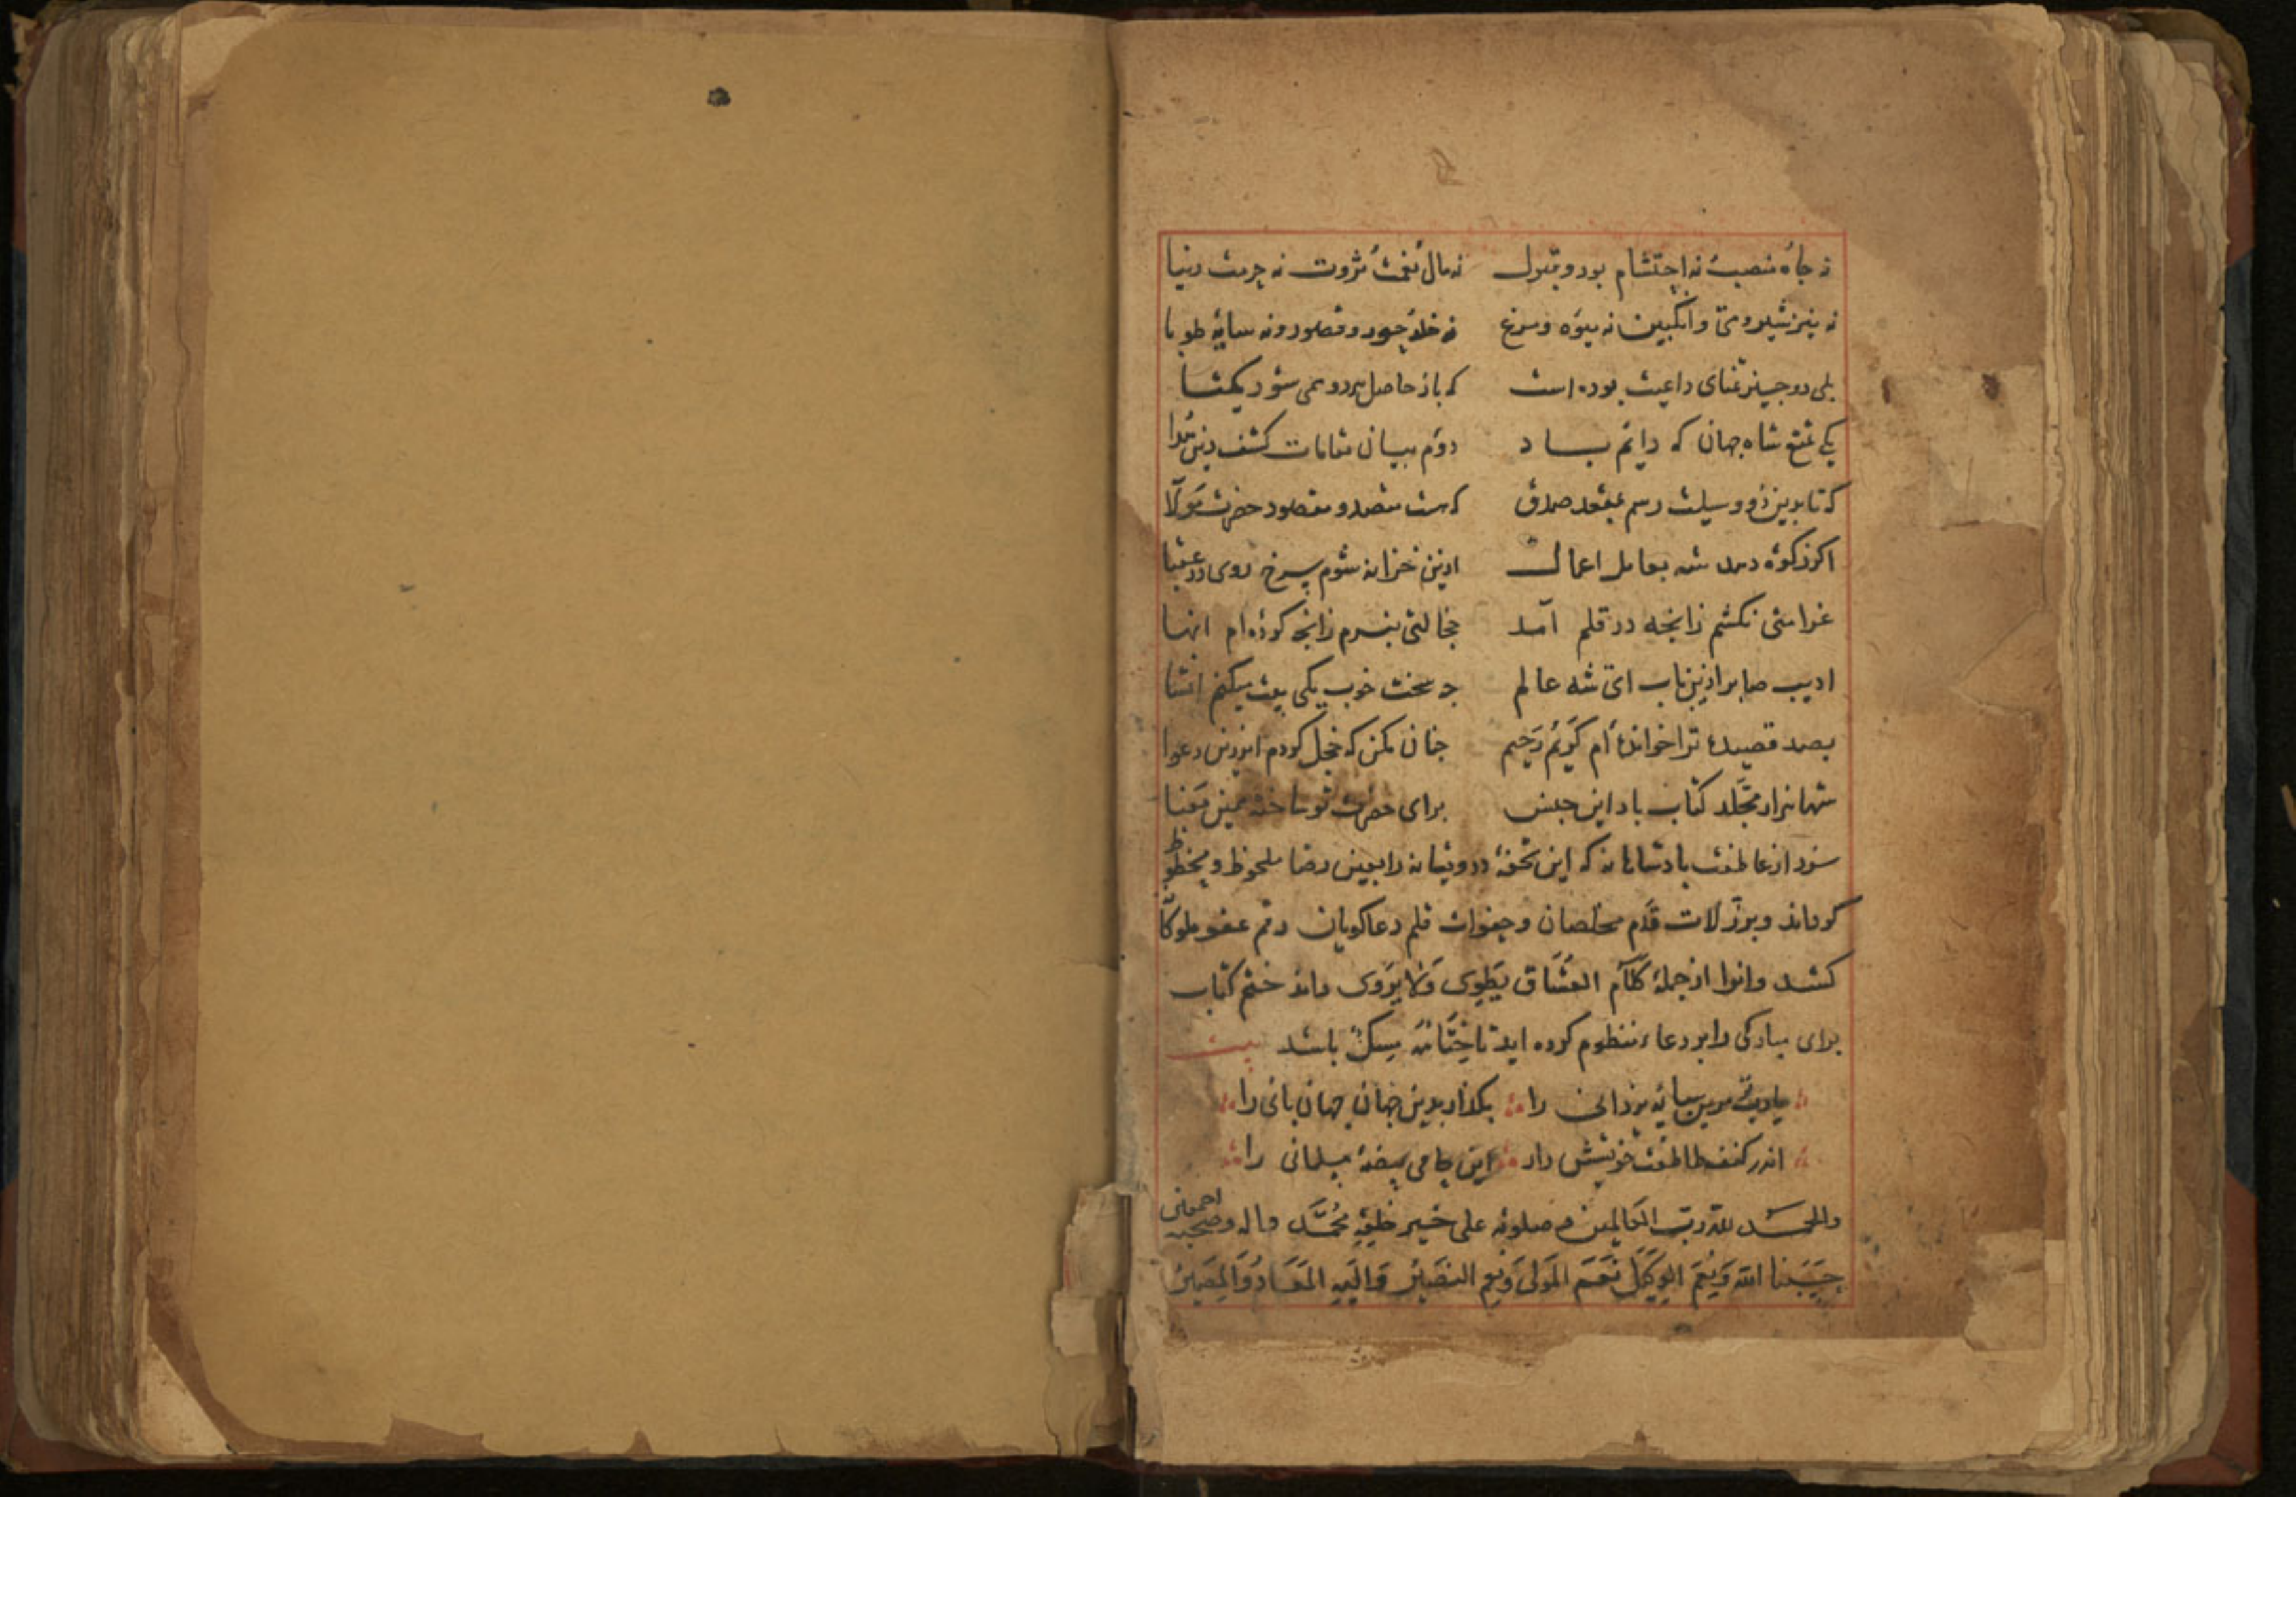 نه جاه منصب نه احتشام بود و قبول نه مال نعمت ثروت نه حرمت دنیا
نه نیز شیر و می و انگبین نه میوه و مرغ نه خلد حور و قصور و نه سایه طوبا
بلی دو چیز تمنای داعیت بوده است که باز حاصل هر دو همی شود یکتا
یکی تمتع شاه جهان که دایم باد دوم بیان مقامات کشف دین
که تا بدین دو وسیلت رسم بمقعد صدق که هست مقصد و مقصود حضرت مولا
اکر زکوة دهد شه بعامل اعمال ازین خزانه شوم سرخ روی در عقبا
غرامتی نکشم زانچه در قلم آمد خجالتی نبرم زانچه کرده‌ام انها
ادیب صابر ازین باب ای شه عالم چه سخت خوب یکی بیت میکنم انشا
بصد قصیده ترا خوانده‌ام کریم رحیم چنان مکن که خجل کردم اندرین دعوا
شها هزار مجلد کتاب باد این جنس برای حضرت تو ساخته همین معنا
سزد از عاطفت بادشاهانه که این تحفهٔ درویشانه را بعین رضا ملحوظ و محظوظ
کرداند و بر زلات قدم مخلصان و هفوات قلم دعاکویان رقم عفو ملوکا
کشد و انرا از جملهٔ کلام العشاق یطوی ولا یروی داند ختم کتاب
برای مبارکی را بر دعاء منظوم کرده اید تا ختامه مسک باشد بیت
یارب مر این سایه یزدانی را بکذار بدین جهان جهان بانی را
اندر کنف عاطفت خویش دار این حامی بیضهٔ مسلمانی را
والحمد لله رب العالمین و صلوته علی خیر خلقه محمد و اله و صحبه اجمعین
حسبنا الله و نعم الوکیل نعم المولی و نعم النصیر و الیه المعاد و المصیر